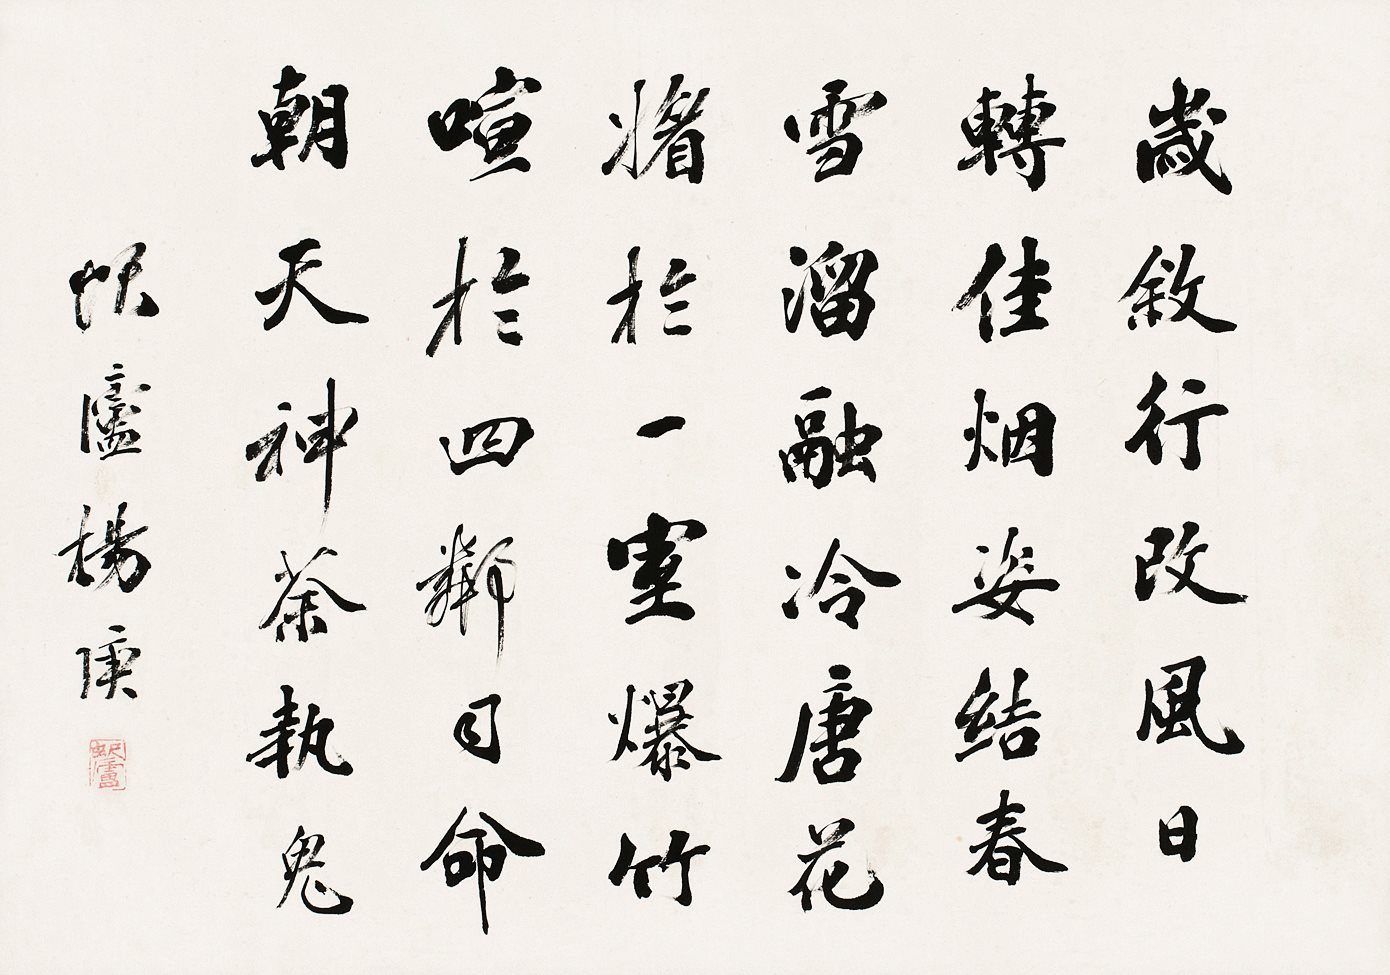 歲敘行改風日
轉佳烟姿結春
雪溜融冷唐花
於一室爆竹
喧於四鄰司命
朝天神荼執鬼
廬楊庚